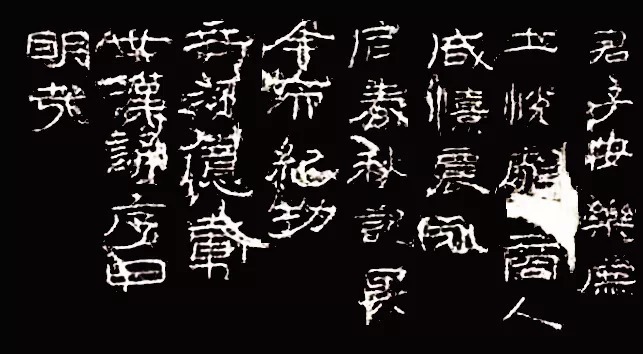 君子安樂庶
士悅雍商人
咸憘農夫
同春秋記異
今而紀功
垂流億載
世嘆誦序曰
明哉